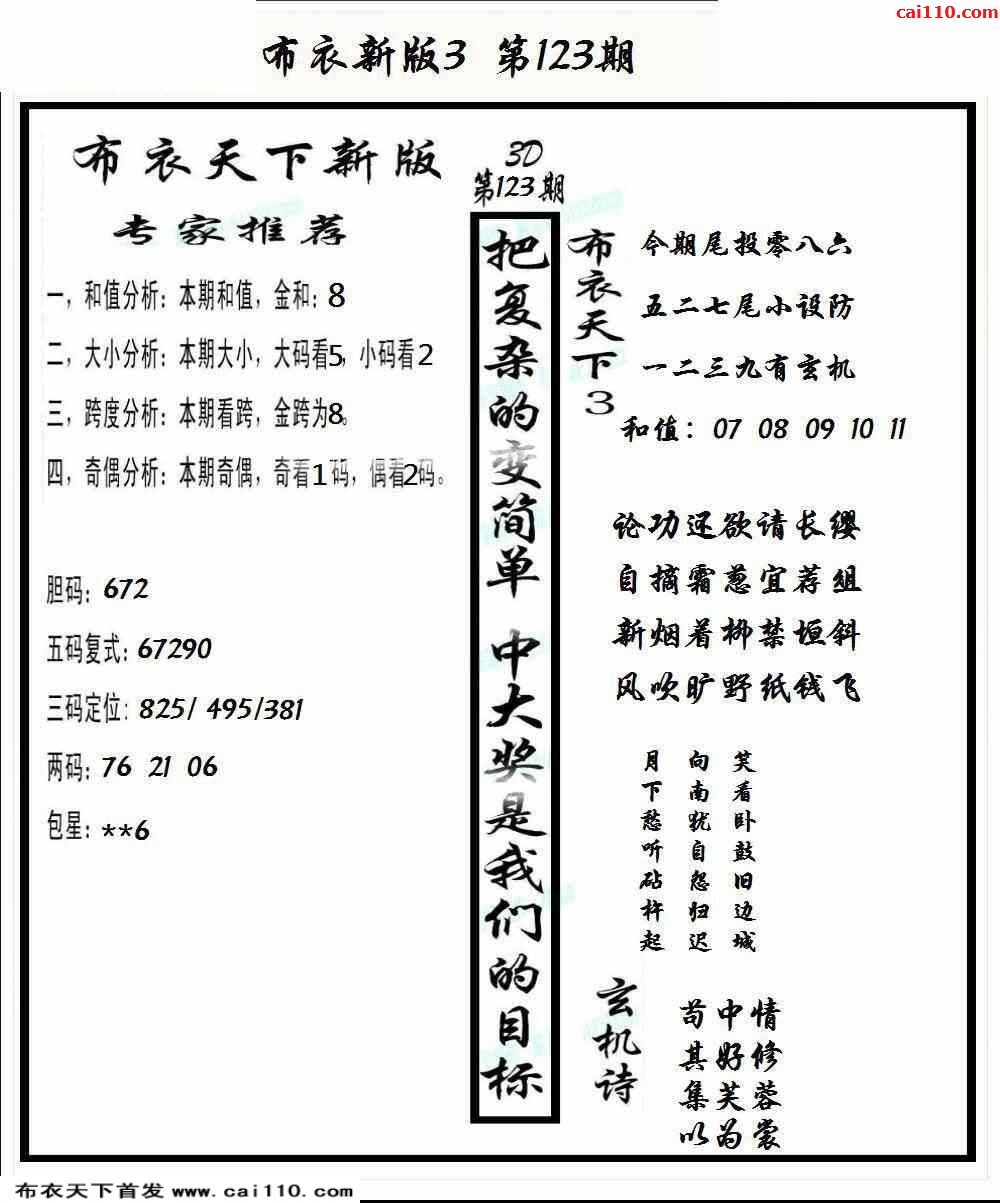 cai110.com
布衣新版3 第123期
布衣天下新版
专家推荐
一，和值分析：本期和值，金和：8
二，大小分析：本期大小，大码看5，小码看2
三，跨度分析：本期看跨，金跨为8。
四，奇偶分析：本期奇偶，奇看1码，偶看2码。
胆码：672
五码复式：67290
三码定位：825/ 495/381
两码：76 21 06
包星：**6
3D
第123期
把复杂的变简单 中大奖是我们的目标
布衣天下3
今期尾投零八六
五二七尾小设防
一二三九有玄机
和值：07 08 09 10 11
论功还欲请长缨
自摘霜葱宜荐组
新烟着柳禁垣斜
风吹旷野纸钱飞
笑看卧鼓旧边城
向南犹自怨归迟
月下愁听砧杵起
玄机诗
苟中情
其好修
集芙蓉
以为裳
布衣天下首发 www.cai110.com